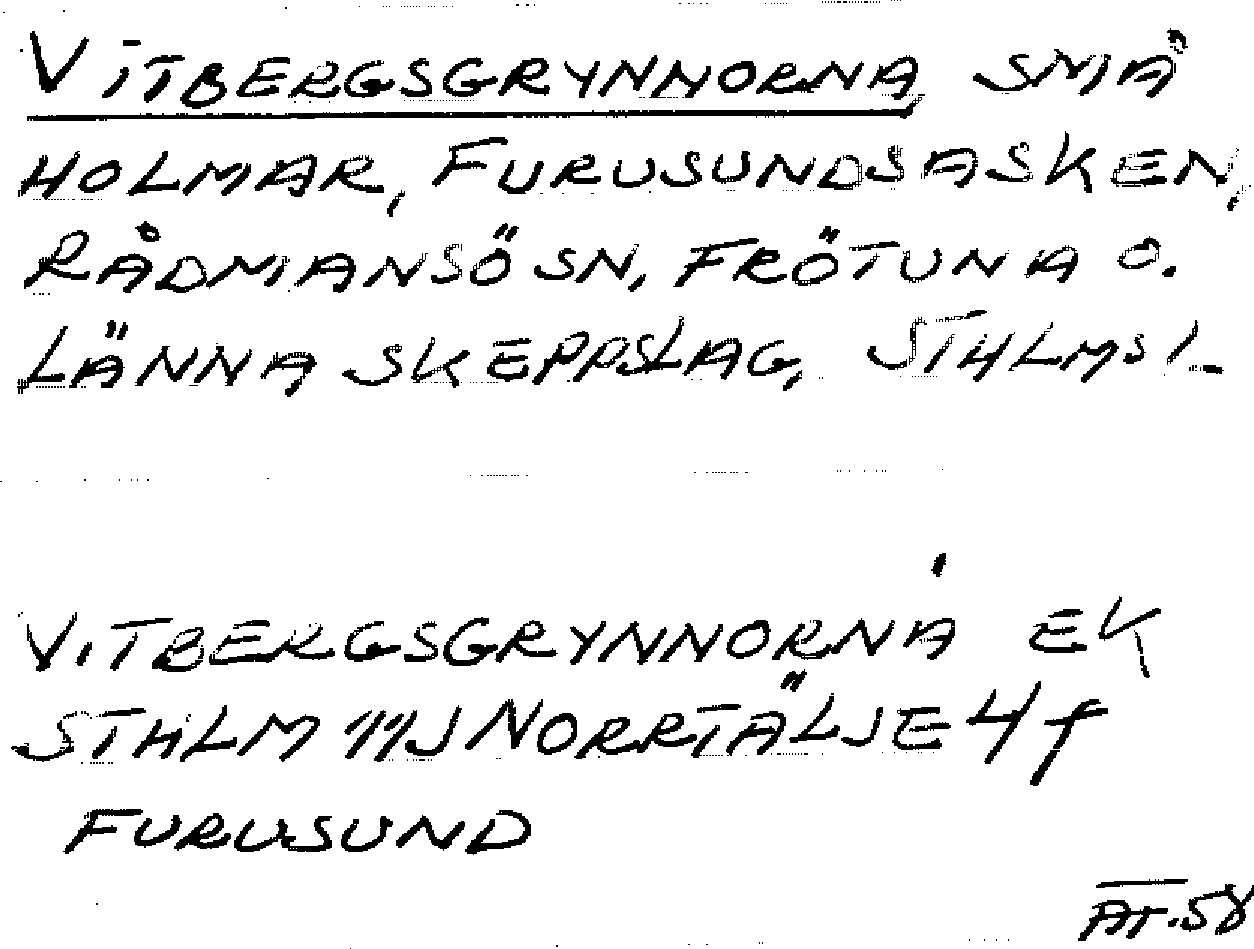 VITBERGSGRYNNORNA, SMÅ
HOLMAR, FURUSUNDSASKEN,
RÅDMANSÖ SN, FRÖTUNA O.
LÄNNA SKEPPSLAG, STHLMS L.
VITBERGSGRYNNORNA EK
STHLM 11J NORRTÄLJE 4f
FURUSUND
ÅT. 58